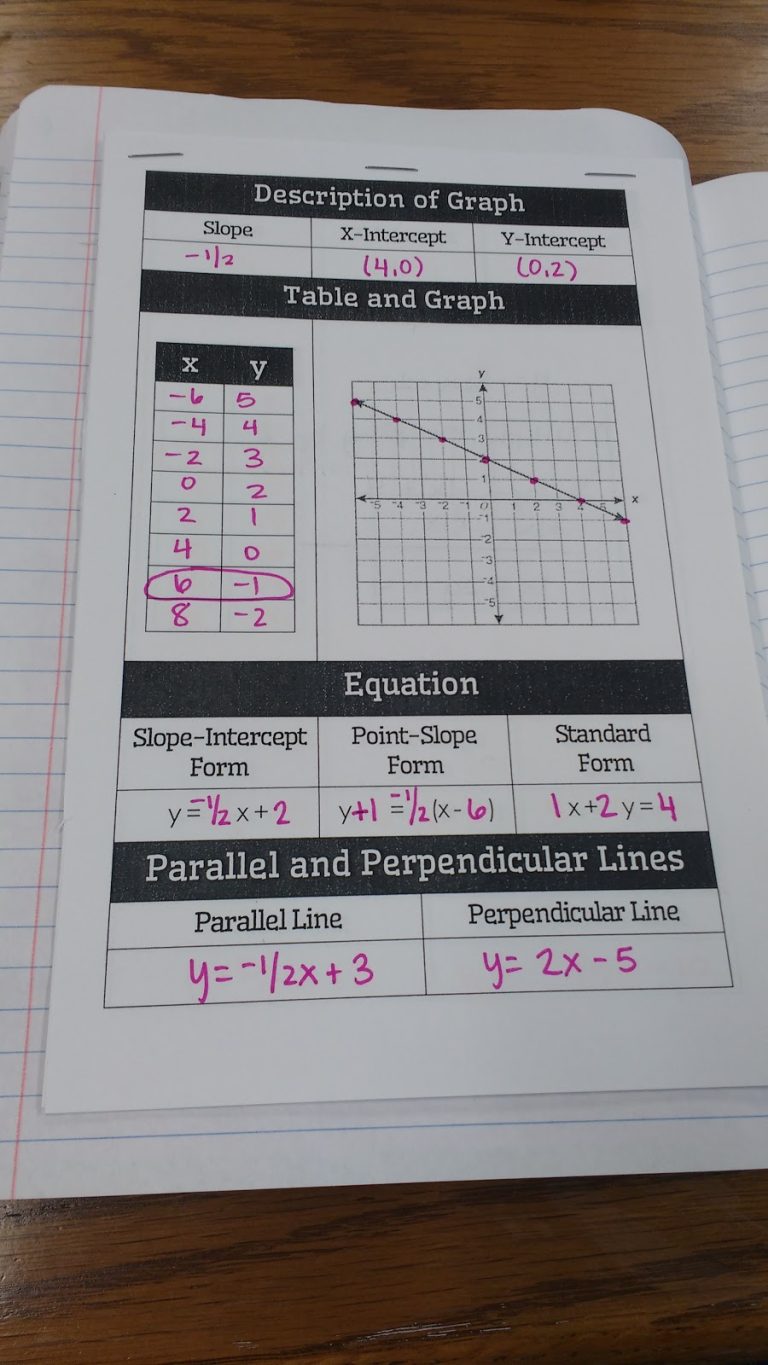 Description of Graph
Slope X-Intercept Y-Intercept
-1/2 (4,0) (0,2)
Table and Graph
x y
-6 5
-4 4
-2 3
0 2
2 1
4 0
6 -1
8 -2
y
5
4
3
1
-5 -4 -3 -2 -1 0 1 2 3 4 x
-1
-2
-3
-4
-5
Equation
Slope-Intercept Form
Point-Slope Form
Standard Form
y=-1/2x+2 y+1=-1/2(x-6) 1x+2y=4
Parallel and Perpendicular Lines
Parallel Line Perpendicular Line
y=-1/2x+3 y=2x-5